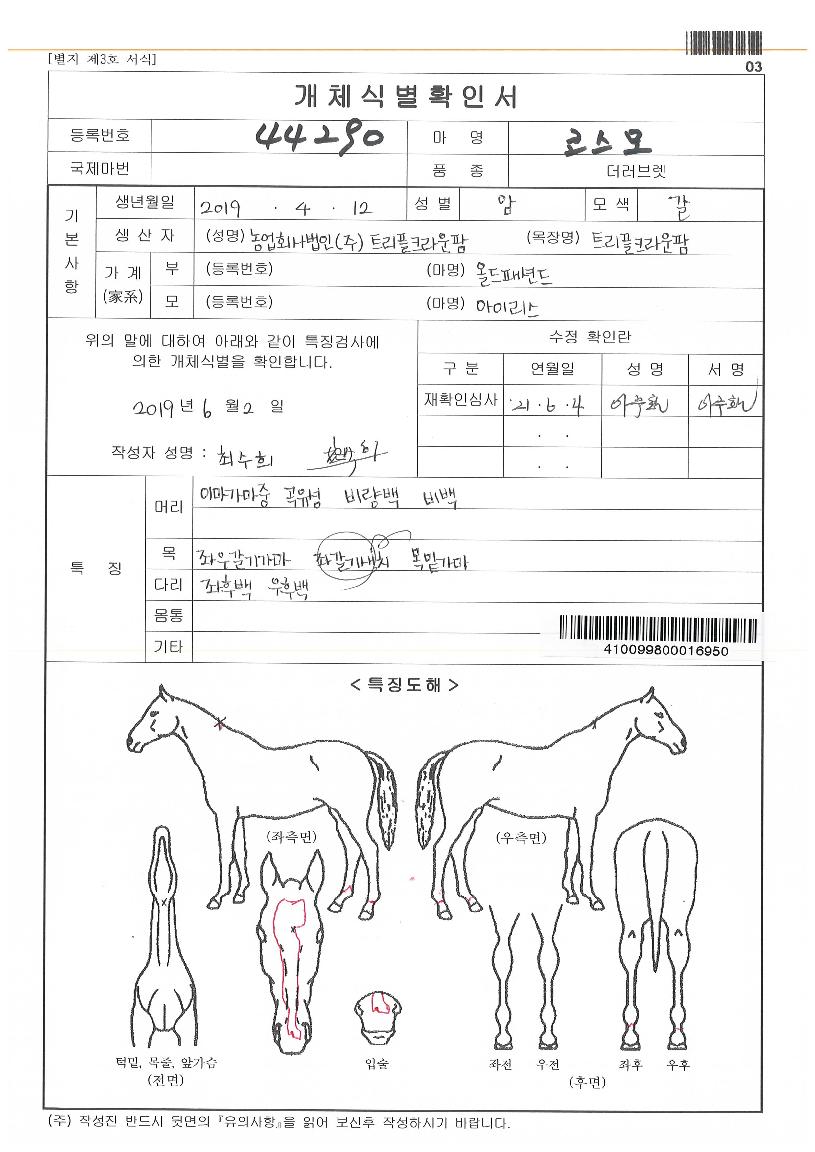 [별지 제3호 서식]
03
개체식별확인서
등록번호 44290 마 명 코스모
국제마번 품 종 더러브렛
기본사항
생년월일 2019 . 4 . 12 성 별 암 모 색 갈
생 산 자 (성명) 농업회사법인(주) 트리플크라운팜 (목장명) 트리플크라운팜
가 계 (家系)
부 (등록번호) (마명) 올드패션드
모 (등록번호) (마명) 아이리스
위의 말에 대하여 아래와 같이 특징검사에
의한 개체식별을 확인합니다.
2019년 6 월 2 일
작성자 성명 : 최수희
수정 확인란
구 분 연월일 성 명 서 명
재확인심사 '21 . 6 . 4
. .
. .
특 징
머리 이마가마중 곡유성 비량백 비백
목 좌우갈기가마 좌갈기새치 목밑가마
다리 좌후백 우후백
몸통
기타
410099800016950
< 특징도해 >
(좌측면) (우측면)
턱밑, 목줄, 앞가슴
(전면)
입술
좌전 우전 좌후 우후
(후면)
(주) 작성진 반드시 뒷면의 『유의사항』을 읽어 보신후 작성하시기 바랍니다.